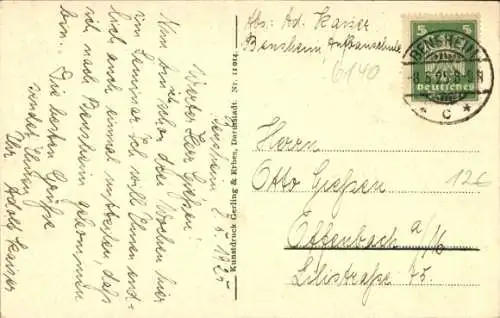 Bensheim 7.5.1925
Werter Herr Gießen!
Nun bin ich schon drei Wochen hier
im Seminar. Ich will Ihnen end-
lich auch einmal mitteilen, daß
ich nach Bensheim gekommen
bin. Die besten Grüße
sendet Ihnen
Ihr Adolf Kaiser
Kunstdruck Gerling & Erbes, Darmstadt. Nr. 11914.
Abs: Ad. Kaiser
Bensheim, Aufbauschule
6140
5 5
Deutsches
BENSHEIM
* C *
Herrn
Otto Gießen
126
Offenbach a/M
Lilistraße 75.